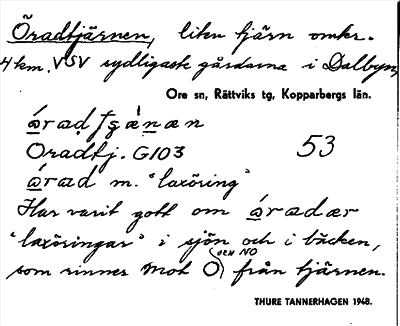 Öradtjärnen, liten tjärn omkr.
4 km. VSV sydligaste gårdarna i Dalbyn,
Ore sn, Rättviks tg, Kopparbergs län.
Oradtj. G103 53
m. "laxöring"
Har varit gott om
"laxöringar" i sjön och i bäcken,
OCH NO
som rinner mot från tjärnen.
THURE TANNERHAGEN 1948.